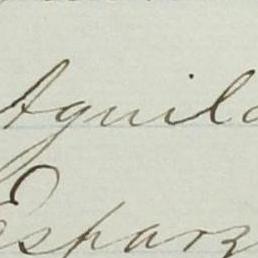 Aguila
Esparz